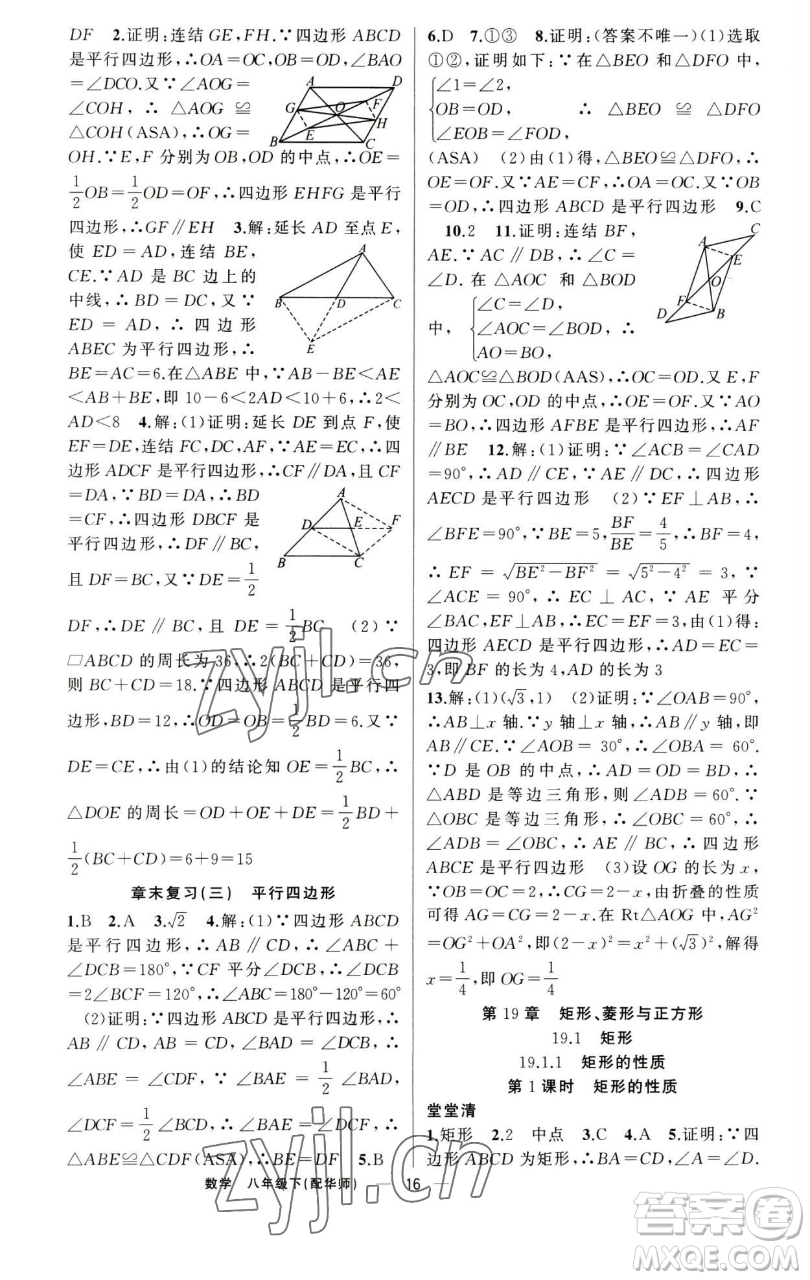 DF　2.证明:连结 GE,FH.∵四边形 ABCD
是平行四边形,∴OA=OC,OB=OD,∠BAO
=∠DCO.又∵∠AOG=
∠COH,∴△AOG≌
△COH(ASA),∴OG=
OH.∵E,F 分别为 OB,OD 的中点,∴OE=
1/2 OB=1/2 OD=OF,∴四边形 EHFG 是平行
四边形,∴GF∥EH　3.解:延长 AD 至点 E,
使 ED=AD,连结 BE,
CE.∵AD 是 BC 边上的
中线,∴BD=DC,又∵
ED=AD,∴四边形
ABEC 为平行四边形,∴
BE=AC=6.在△ABE 中,∵AB-BE<AE
<AB+BE,即 10-6<2AD<10+6,∴2<
AD<8　4.解:(1)证明:延长 DE 到点 F,使
EF=DE,连结 FC,DC,AF,∵AE=EC,∴四
边形 ADCF 是平行四边形,∴CF∥DA,且 CF
=DA,∵BD=DA,∴BD
=CF,∴四边形 DBCF 是
平行四边形,∴DF∥BC,
且 DF=BC,又∵DE=1/2
DF,∴DE∥BC,且 DE=1/2 BC　(2)∵
□ABCD 的周长为 36,∴2(BC+CD)=36,
则 BC+CD=18.∵四边形 ABCD 是平行四
边形,BD=12,∴OD=OB=1/2 BD=6.又∵
DE=CE,∴由(1)的结论知 OE=1/2 BC,∴
△DOE 的周长=OD+OE+DE=1/2 BD+
1/2 (BC+CD)=6+9=15
章末复习(三)　平行四边形
1.B　2.A　3.√2　4.解:(1)∵四边形 ABCD
是平行四边形,∴AB∥CD,∴∠ABC+
∠DCB=180°,∵CF 平分∠DCB,∴∠DCB
=2∠BCF=120°,∴∠ABC=180°-120°=60°
(2)证明:∵四边形 ABCD 是平行四边形,∴
AB∥CD,AB=CD,∠BAD=∠DCB,∴
∠ABE=∠CDF,∵∠BAE=1/2 ∠BAD,
∠DCF=1/2 ∠BCD,∴∠BAE=∠DCF,∴
△ABE≌△CDF(ASA),∴BE=DF　5.B
6.D　7.①③　8.证明:(答案不唯一)(1)选取
①②,证明如下:∵在△BEO 和△DFO 中,
∠1=∠2,
OB=OD,　∴△BEO≌△DFO
∠EOB=∠FOD,
(ASA)　(2)由(1)得,△BEO≌△DFO,∴
OE=OF.∵AE=CF,∴OA=OC.又∵OB
=OD,∴四边形 ABCD 是平行四边形　9.C
10.2　11.证明:连结 BF,
AE.∵AC∥DB,∴∠C=
∠D.在△AOC 和△BOD
∠C=∠D,
中,　∠AOC=∠BOD,　∴
AO=BO,
△AOC≌△BOD(AAS),∴OC=OD.又 E,F
分别为 OC,OD 的中点,∴OE=OF.又∵AO
=BO,∴四边形 AFBE 是平行四边形,∴AF
∥BE　12.解:(1)证明:∵∠ACB=∠CAD
=90°,∴AD∥CE,∵AE∥DC,∴四边形
AECD 是平行四边形　(2)∵EF⊥AB,∴
∠BFE=90°,∵BE=5,BF/BE=4/5,∴BF=4,
∴EF=√(BE²-BF²)=√(5²-4²)=3,∵
∠ACE=90°,∴EC⊥AC,∵AE 平分
∠BAC,EF⊥AB,∴EF=EC=3,由(1)得:
四边形 AECD 是平行四边形,∴AD=EC=
3,即 BF 的长为 4,AD 的长为 3
13.解:(1)(√3,1)　(2)证明:∵∠OAB=90°,
∴AB⊥x 轴.∵y 轴⊥x 轴,∴AB∥y 轴,即
AB∥CE.∵∠AOB=30°,∴∠OBA=60°.
∵D 是 OB 的中点,∴AD=OD=BD,∴
△ABD 是等边三角形,则∠DAB=60°.∵
△OBC 是等边三角形,∴∠OBC=60°,∴
∠ADB=∠OBC,∴AE∥BC,∴四边形
ABCE 是平行四边形　(3)设 OG 的长为 x,
∵OC=OB=2,∴CG=2-x.由折叠的性质
可得 AG=CG=2-x.在 Rt△AOG 中,AG²
=OG²+OA²,即(2-x)²=x²+(√3)²,解得
x=1/4,即 OG=1/4
第 19 章　矩形、菱形与正方形
19.1　矩形
19.1.1　矩形的性质
第 1 课时　矩形的性质
堂堂清
1.矩形　2.2　中点　3.C　4.A　5.证明:∵四
边形 ABCD 为矩形,∴∠B=∠C=90°.∵
数学　八年级下(配华师)　—16—